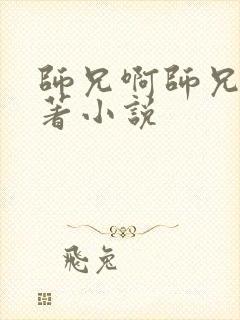 師兄啊師兄
著小説
飛兔